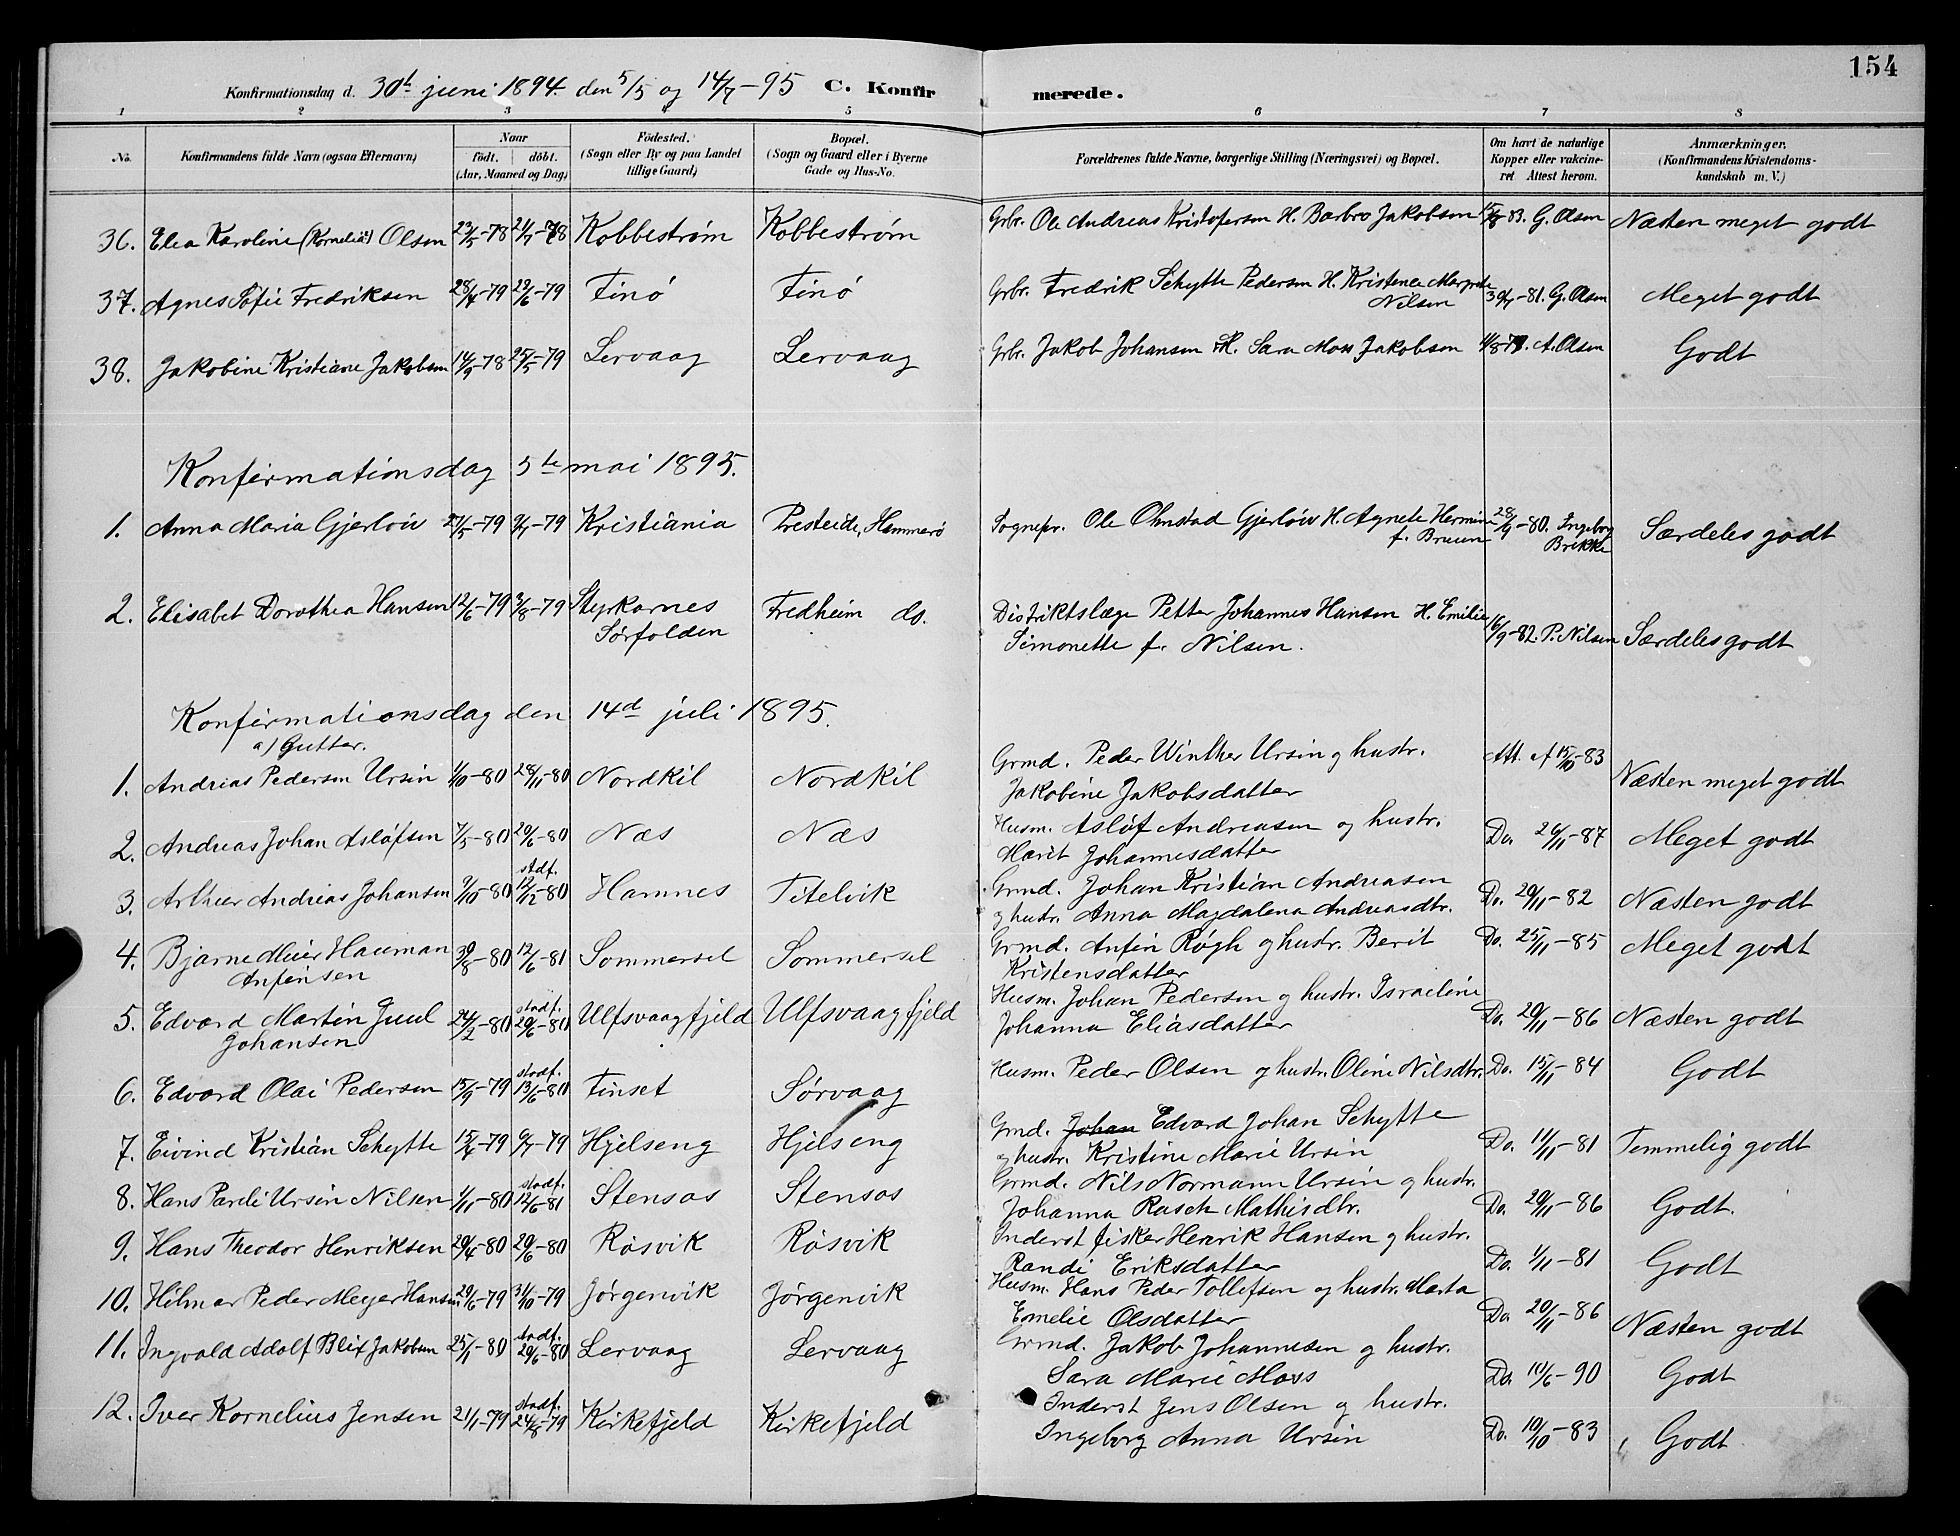 154
Konfirmationsdag d. 30te juni 1894. den 5/5 og 14/7-95 C. Konfirmerede.
1 2 3 4 5 6 7 8
No. Konfirmandens fulde Navn (ogsaa Efternavn) Naar födt. döbt. (Aar, Maaned og Dag) Födested. (Sogn eller By og paa Landet tillige Gaard) Bopæl. (Sogn og Gaard eller i Byerne Gade og Hus-No. Forældrenes fulde Navne, borgerlige Stilling (Næringsvei) og Bopæl. Om havt de naturlige Kopper eller vakcineret Attest herom. Anmærkninger. (Konfirmandens Kristendomskundskab m. V.)
36. Elea Karoline (Kornelia) Olsen 23/5-78 21/7-78 Kobbestrøm Kobbestrøm Grbr. Ole Andreas Kristofersen H. Barbro Jakobsen 15/8 83. G. Olsen Næsten meget godt
37. Agnes Sofie Fredriksen 28/4-79 22/6-79 Finø Finø Grbr. Fredrik Schytte Pedersen H. Kristence Margrete Nilsen 30/7-81. G. Olsen Meget godt
38. Jakobine Kristiane Jakobsen 14/9-78 25/5-79 Lervaag Lervaag Grbr. Jakob Johansen H. Sara Moss Jakobsen A. Olsen Godt
Konfirmationsdag 5te mai 1895.
1. Anna Maria Gjerløw 21/5-79 9/7-79 Kristiania Presteide, Hammerø Sognepr. Ole Olmstad Gjerløw H. Agnete Hermine f. Bruun 28/9-80. Ingeborg Brekke Særdeles godt
2. Elisabet Dorothea Hansen 12/6-79 3/8-79 Styrkarnes Sørfolden Fredheim do. Distriktslæge Petter Johannes Hansen H. Emilie Simonette f. Nilsen. 16/9-82. P. Nilsen Særdeles godt
Konfirmationsdag den 14d juli 1895.
a) Gutter.
1. Andreas Pedersen Ursin 1/10-80 28/11-80 Nordkil Nordkil Grmd. Peder Winther Ursin og hustr. Jakobine Jakobsdatter Att. af 15/10-83 Næsten meget godt
2. Andreas Johan Asløfsen 7/5-80 20/6-80 Næs Næs Husm. Asløf Andreasen og hustr. Marit Johannesdatter Do. 26/11-87 Meget godt
3. Arthur Andreas Johansen 9/10-80 stadf. 12/12-80 Hamnes Titelvik Grmd. Johan Kristian Andreasen og hustr. Anna Magdalena Andreasdtr. Do. 20/11-82 Næsten godt
4. Bjarne Meier Hauman Anfinsen 30/8-80 12/6-81 Sommersel Sommersel Grmd. Anfin Røgh og hustr. Berit Kristensdatter Do. 25/11-85 Meget godt
5. Edvard Martin Juul Johansen 24/2-80 stadf. 20/6-80 Ulfsvaagfjeld Ulfsvaagfjeld Husm. Johan Pedersen og hustr. Israeline Johanna Eliasdatter Do. 20/11-86 Næsten godt
6. Edvard Olai Pedersen 15/9-79 stadf. 13/6-80 Finset Sørvaag Husm. Peder Olsen og hustr. Oline Nilsdtr. Do. 15/11-84 Godt
7. Eivind Kristian Schytte 15/4-79 6/7-79 Hjelseng Hjelseng Grmd. Johan Edvard Johan Schytte og hustr. Kristine Marie Ursin Do. 11/11-81 Temmelig godt
8. Hans Pareli Ursin Nilsen 1/11-80 stadf. 12/6-81 Stensos Stensos Grmd. Nils Normann Ursin og hustr. Johanna Rasch Mathisdtr. Do. 20/11-86 Godt.
9. Hans Theodor Henriksen 20/4-80 20/6-80 Røsvik Røsvik Inderst fisker Henrik Hansen og hustr. Randi Eriksdatter Do. 1/11-81 Godt
10. Hilmar Peder Meyer Hansen 29/6-79 31/10-79 Jørgenvik Jørgenvik Husm. Hans Peder Tollefsen og hustr. Marta Emelie Olsdatter Do. 20/11-86 Næsten godt
11. Ingvald Adolf Blix Jakobsen 25/1-80 stadf. 20/6-80 Lervaag Lervaag Grmd. Jakob Johannesen og hustr. Sara Marie Moss Do. 10/6-90 Godt
12. Iver Kornelius Jensen 21/1-79 stadf. 24/8-79 Kirkefjeld Kirkefjeld Inderst Jens Olsen og hustr. Ingeborg Anna Ursin Do. 10/10-83 Godt